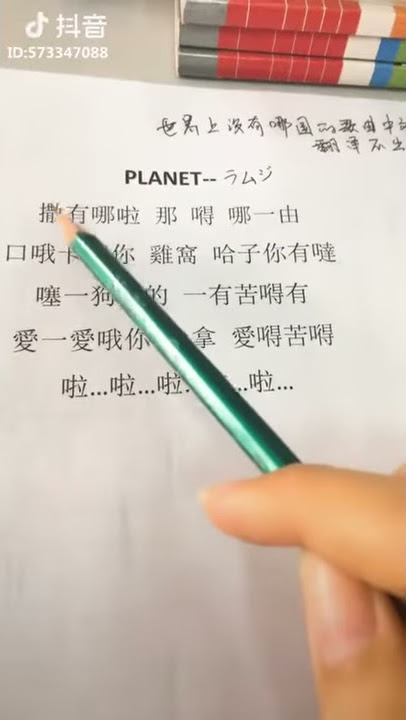 抖音
ID:573347088
世界上没有哪国的歌曲中文
翻译不出
PLANET-- ラムジ
撒有哪啦 那 嘚 哪一由
口哦卡 你 雞窩 哈子你有噠
噻一狗 的 一有苦嘚有
愛一愛哦你 拿 愛嘚苦嘚
啦...啦...啦. ..啦...